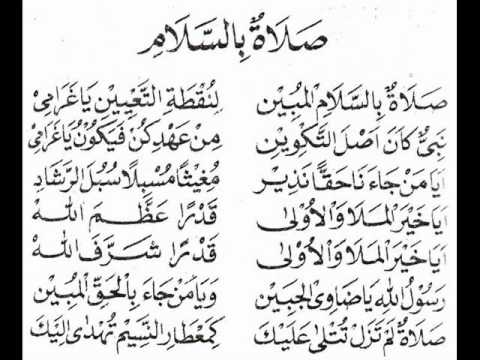 صَلَاةٌ بِالسَّلَامِ
صَلَاةٌ بِالسَّلَامِ الْمُبِيْن لِنُقْطَةِ التَّعْيِيْنِ يَا غَرَامِيْ
نَبِيٌّ كَانَ اَصْلَ التَّكْوِيْنِ مِنْ عَهْدِ كُنْ فَيَكُوْنُ يَا غَرَامِيْ
اَيَا مَنْ جَاءَنَا حَقًّا نَذِيْر مُغِيْثًا مُسْبِلًا سُبُلَ الرَّشَادِ
اَيَا خَيْرَ الْمَلَا وَالْاُوْلَى قَدْرًا عَظَّمَ اللهُ
اَيَا خَيْرَ الْمَلَا وَالْاُوْلَى قَدْرًا شَرَّفَ اللهُ
رَسُوْلُ اللهِ يَا ضَاوِى الْجَبِيْن وَيَا مَنْ جَاءَ بِالْحَقِّ الْمُبِيْن
صَلَاةٌ لَمْ تَزَلْ تُتْلَى عَلَيْكَ كَمِعْطَارِ النَّسِيْمِ تُهْدَى اِلَيْكَ